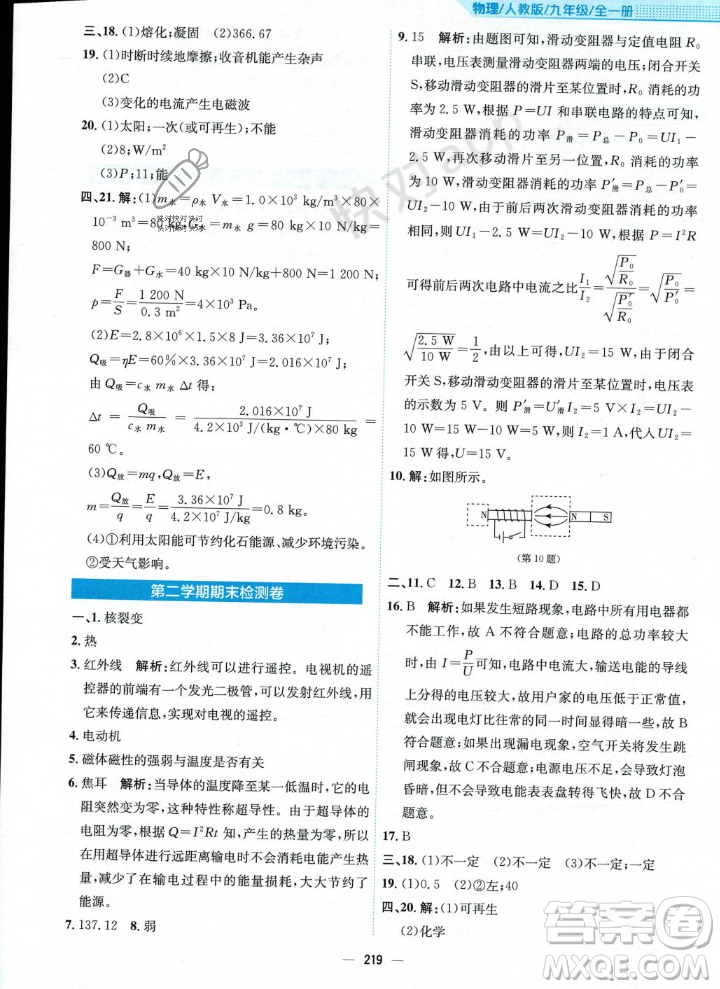 物理/人教版/九年级/全一册
三、18. (1)熔化;凝固 (2)366.67
19. (1)时断时续地摩擦;收音机能产生杂声
(2)C
(3)变化的电流产生电磁波
20. (1)太阳;一次(或可再生);不能
(2)8;W/m²
(3)P;11;能
四、21. 解:(1)m水=ρ水 V水=1.0×10³ kg/m³×80
×10⁻³ m³=80 kg,G水=m水 g=80 kg×10 N/kg=800 N
F=G器+G水=40 kg×10 N/kg+800 N=1 200 N
p=F/S=1 200 N/0.3 m²=4×10³ Pa。
(2)E=2.8×10⁶×1.5×8 J=3.36×10⁷ J
Q吸=ηE=60%×3.36×10⁷ J=2.016×10⁷ J
由 Q吸=c水 m水 Δt 得:
Δt=Q吸/(c水 m水)=2.016×10⁷ J/(4.2×10³ J/(kg·℃)×80 kg)=
60 ℃。
(3)Q放=mq,Q放=E,
m=Q放/q=E/q=3.36×10⁷ J/4.2×10⁷ J/kg=0.8 kg。
(4)①利用太阳能可节约化石能源、减少环境污染。
②受天气影响。
第二学期期末检测卷
一、1. 核裂变
2. 热
3. 红外线 解析:红外线可以进行遥控。电视机的遥
控器的前端有一个发光二极管,可以发出红外线,用
它来传递信息,实现对电视的遥控。
4. 电动机
5. 磁体磁性的强弱与温度是否有关
6. 焦耳 解析:当导体的温度降至某一值时,它的电
阻突然变为零,这时导体变为超导体。由于超导体的
电阻为零,根据 Q=I²Rt 知,产生的热量为零,所以
在用超导体进行远距离输电时,没有电能转化为内
能。大大减少了输电过程中因发热消耗电能产生的
能量损耗。
7. 137.12 8. 弱
9. 15 解析:由题图可知,滑动变阻器与定值电阻 R₀
串联,电压表测量滑动变阻器两端的电压;闭合开关
S,移动滑动变阻器的滑片至某位置时,R₀ 消耗的功
率为 2.5 W,根据 P=UI 和串联电路的特点可知,
滑动变阻器消耗的功率 P滑=P总-P₀=UI₁-
2.5 W,再次移动滑片至另一位置,R₀ 消耗的功率
为 10 W,此时滑动变阻器消耗的功率 P′滑=P′总-
P′₀=UI₂-10 W,由于两次滑动变阻器消耗的功率
相同,则 UI₁-2.5 W=UI₂-10 W,根据 P=I²R
可得前后两次电路中电流之比I₁/I₂=√(P₀/R₀)/√(P′₀/R₀)=√(P₀/P′₀)=
√(2.5 W/10 W)=1/2,由以上可得,UI₂=15 W,在闭合
开关 S,移动滑动变阻器的滑片至某位置时,电压表
的示数为 5 V。则 P′滑=U′滑 I₂=5 V×I₂=UI₂-
10 W=15 W-10 W=5 W,所以,I₂=1 A,代入
UI₂=15 W,得,U=15 V。
10. 解:如图所示。
N N S
(第 10 题)
二、11. C 12. C 13. D 14. D 15. D
16. B 解析:如果发生短路现象,电路中所有用电器
都不能工作,故 A 不符合题意;电路的总功率增大
时,由 I=P/U 可知,电路中电流大,输送电能的导线
上分得的电压较大,故用户家的电压低于正常值,会
出现电灯比正常发光时暗的现象,故 B 符合题意;
如果电路中出现漏电现象,空气开关将会发生跳
闸现象,故 C 不符合题意;电源电压降低会导致灯泡
昏暗,但不可能导致电能表表盘转得飞快,故 D 不符
合题意。
17. B
三、18. (1)不一定 (2)不一定 (3)不一定;一定
19. (1)0.5 (2)②左;40
四、20. 解:(1)可再生
(2)化学
219
快对app
快对快对快对
快对快对快对
答案圈
MXQE.COM